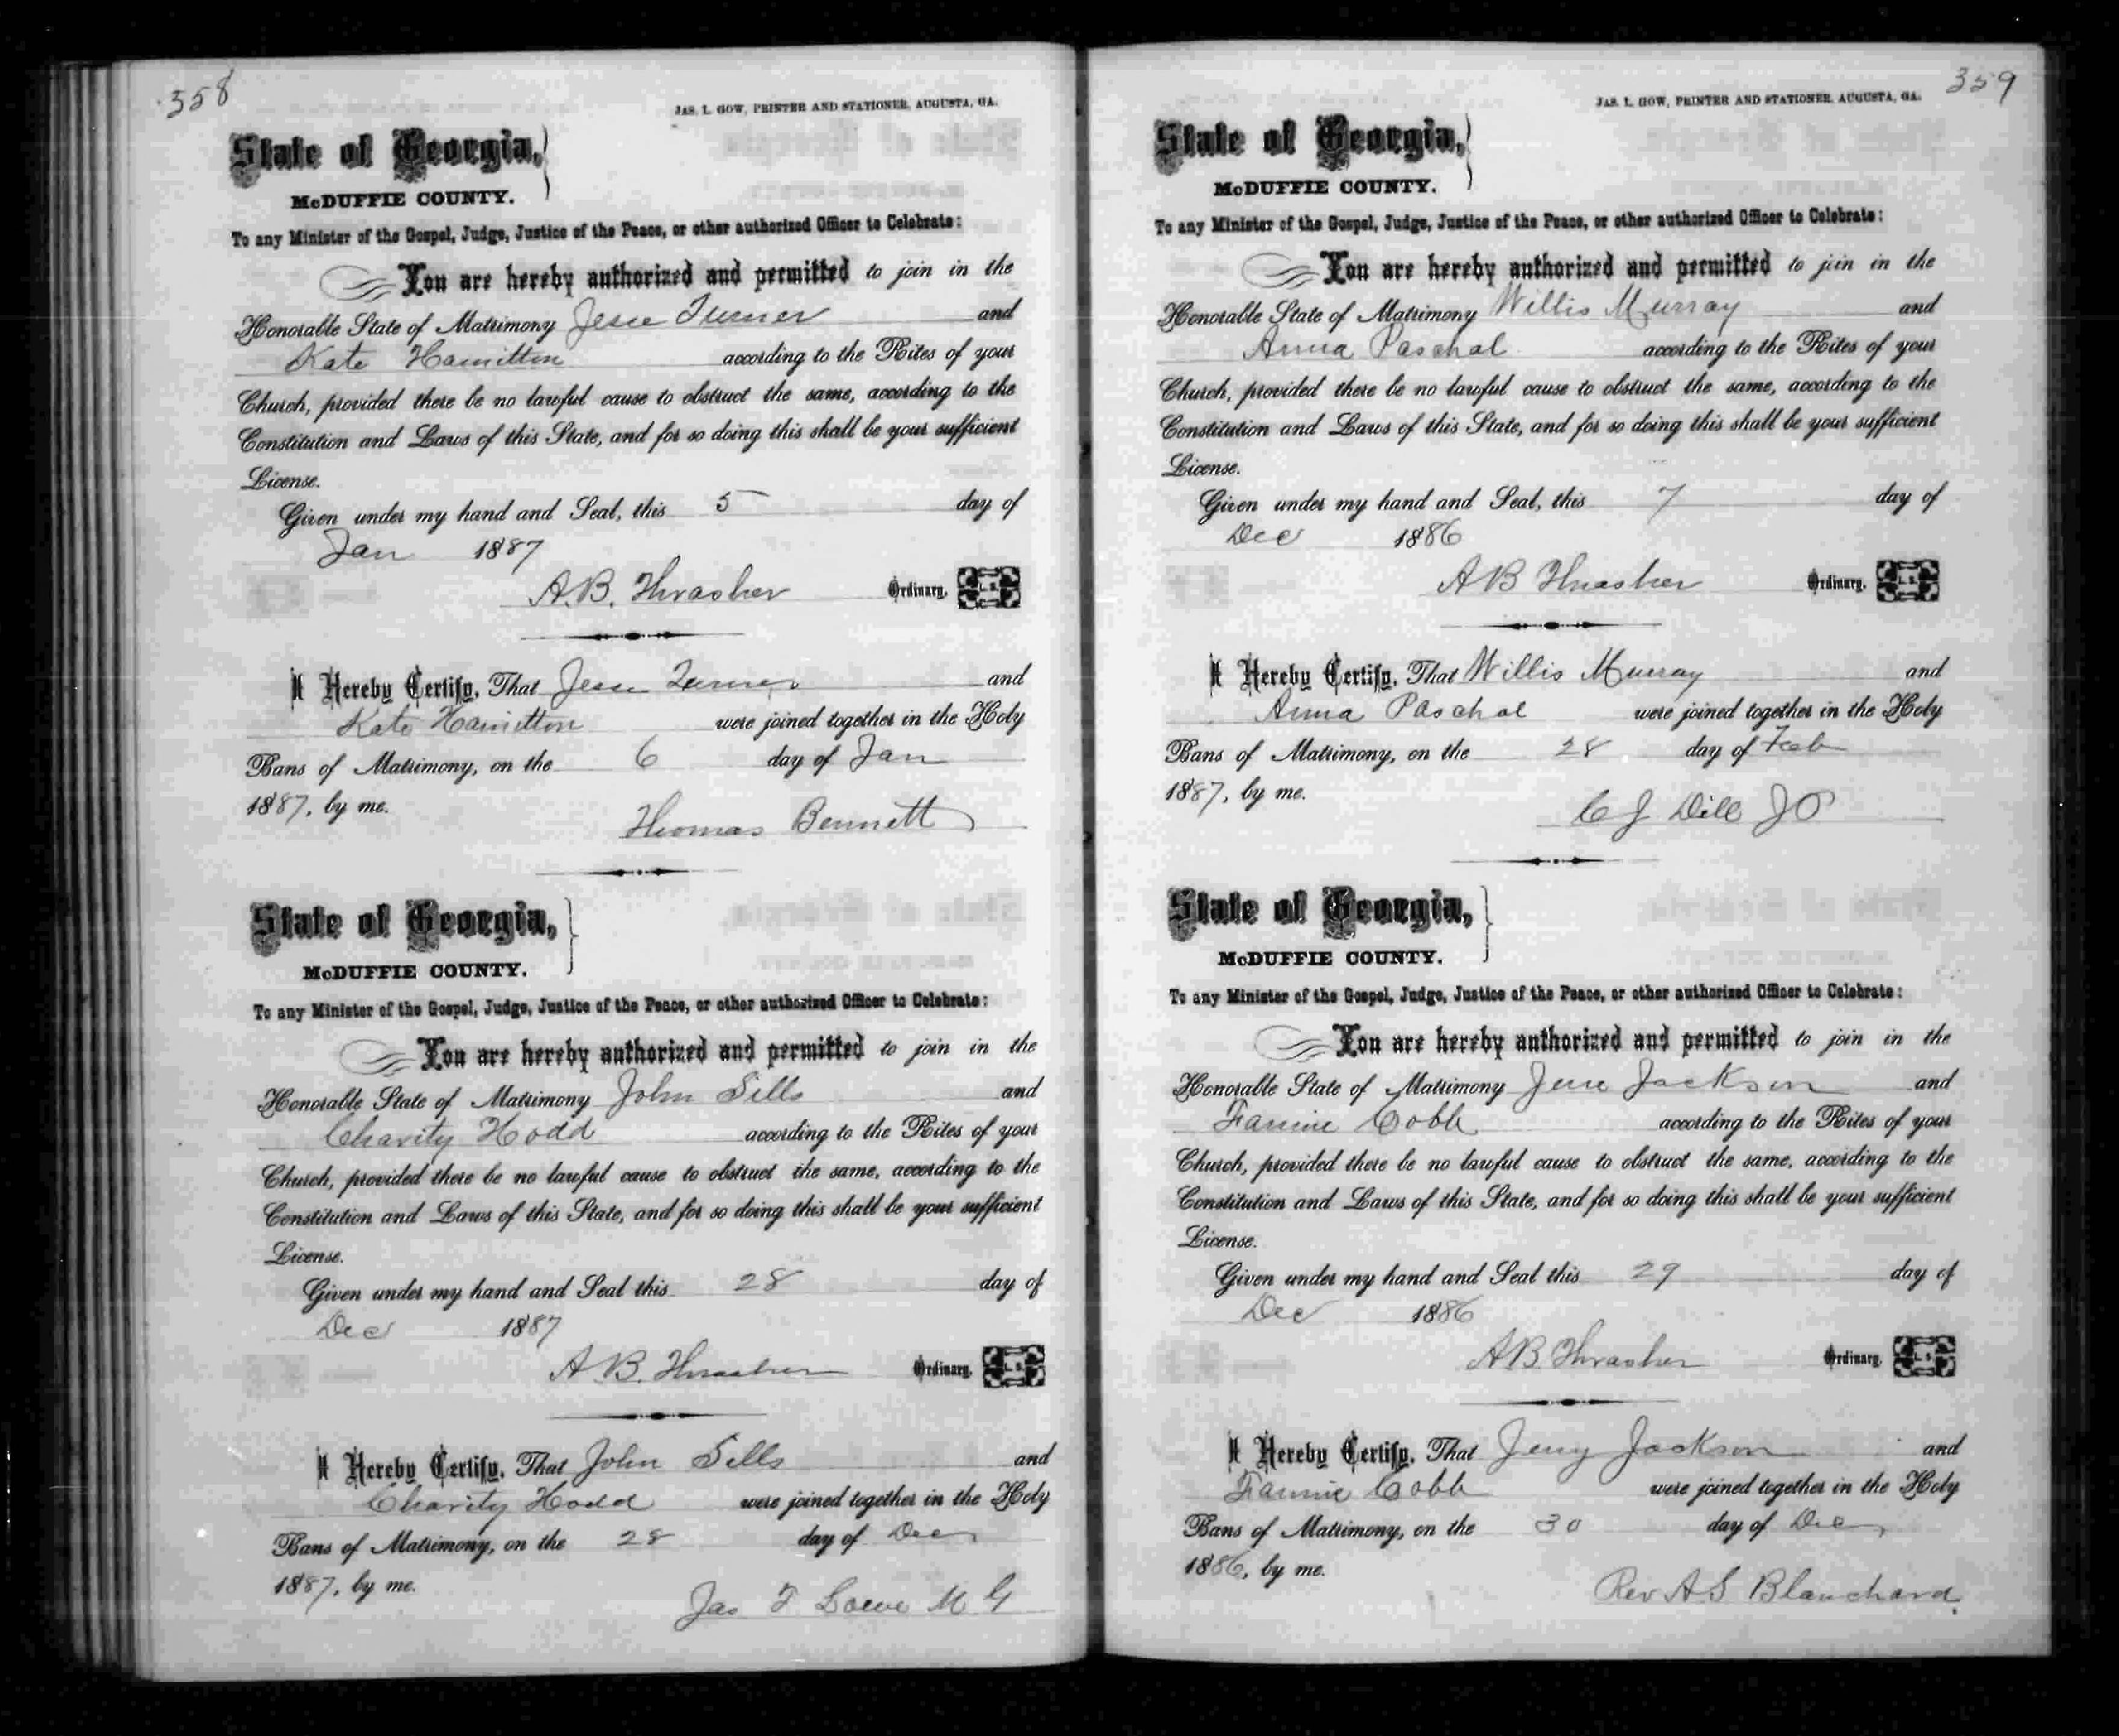 358
JAS. L. GOW, PRINTER AND STATIONER, AUGUSTA, GA.
State of Georgia,
McDUFFIE COUNTY.
To any Minister of the Gospel, Judge, Justice of the Peace, or other authorized Officer to Celebrate:
You are hereby authorized and permitted to join in the
Honorable State of Matrimony Jesse Turner and
Kate Hamilton according to the Rites of your
Church, provided there be no lawful cause to obstruct the same, according to the
Constitution and Laws of this State, and for so doing this shall be your sufficient
License.
Given under my hand and Seal, this 5 day of
Jan 1887
A.B. Thrasher Ordinary. L.S.
I Hereby Certify, That Jesse Turner and
Kate Hamilton were joined together in the Holy
Bans of Matrimony, on the 6 day of Jan
1887, by me.
Thomas Bennett
State of Georgia,
McDUFFIE COUNTY.
To any Minister of the Gospel, Judge, Justice of the Peace, or other authorized Officer to Celebrate:
You are hereby authorized and permitted to join in the
Honorable State of Matrimony John Sills and
Charity Hodd according to the Rites of your
Church, provided there be no lawful cause to obstruct the same, according to the
Constitution and Laws of this State, and for so doing this shall be your sufficient
License.
Given under my hand and Seal this 28 day of
Dec 1887
A.B. Thrasher Ordinary. L.S.
I Hereby Certify, That John Sills and
Charity Hodd were joined together in the Holy
Bans of Matrimony, on the 28 day of Dec
1887, by me.
Jas T Lowe M G
359
JAS. L. GOW, PRINTER AND STATIONER, AUGUSTA, GA.
State of Georgia,
McDUFFIE COUNTY.
To any Minister of the Gospel, Judge, Justice of the Peace, or other authorized Officer to Celebrate:
You are hereby authorized and permitted to join in the
Honorable State of Matrimony Willis Murray and
Anna Paschal according to the Rites of your
Church, provided there be no lawful cause to obstruct the same, according to the
Constitution and Laws of this State, and for so doing this shall be your sufficient
License.
Given under my hand and Seal, this 7 day of
Dec 1886
A B Thrasher Ordinary. L.S.
I Hereby Certify, That Willis Murray and
Anna Paschal were joined together in the Holy
Bans of Matrimony, on the 28 day of Feb
1887, by me.
C J Dill J P
State of Georgia,
McDUFFIE COUNTY.
To any Minister of the Gospel, Judge, Justice of the Peace, or other authorized Officer to Celebrate:
You are hereby authorized and permitted to join in the
Honorable State of Matrimony Jackson and
Fannie Cobb according to the Rites of your
Church, provided there be no lawful cause to obstruct the same, according to the
Constitution and Laws of this State, and for so doing this shall be your sufficient
License.
Given under my hand and Seal this 29 day of
Dec 1886
A.B. Thrasher Ordinary. L.S.
I Hereby Certify, That Jerry Jackson and
Fannie Cobb were joined together in the Holy
Bans of Matrimony, on the 30 day of Dec
1886, by me.
Rev A S Blanchard